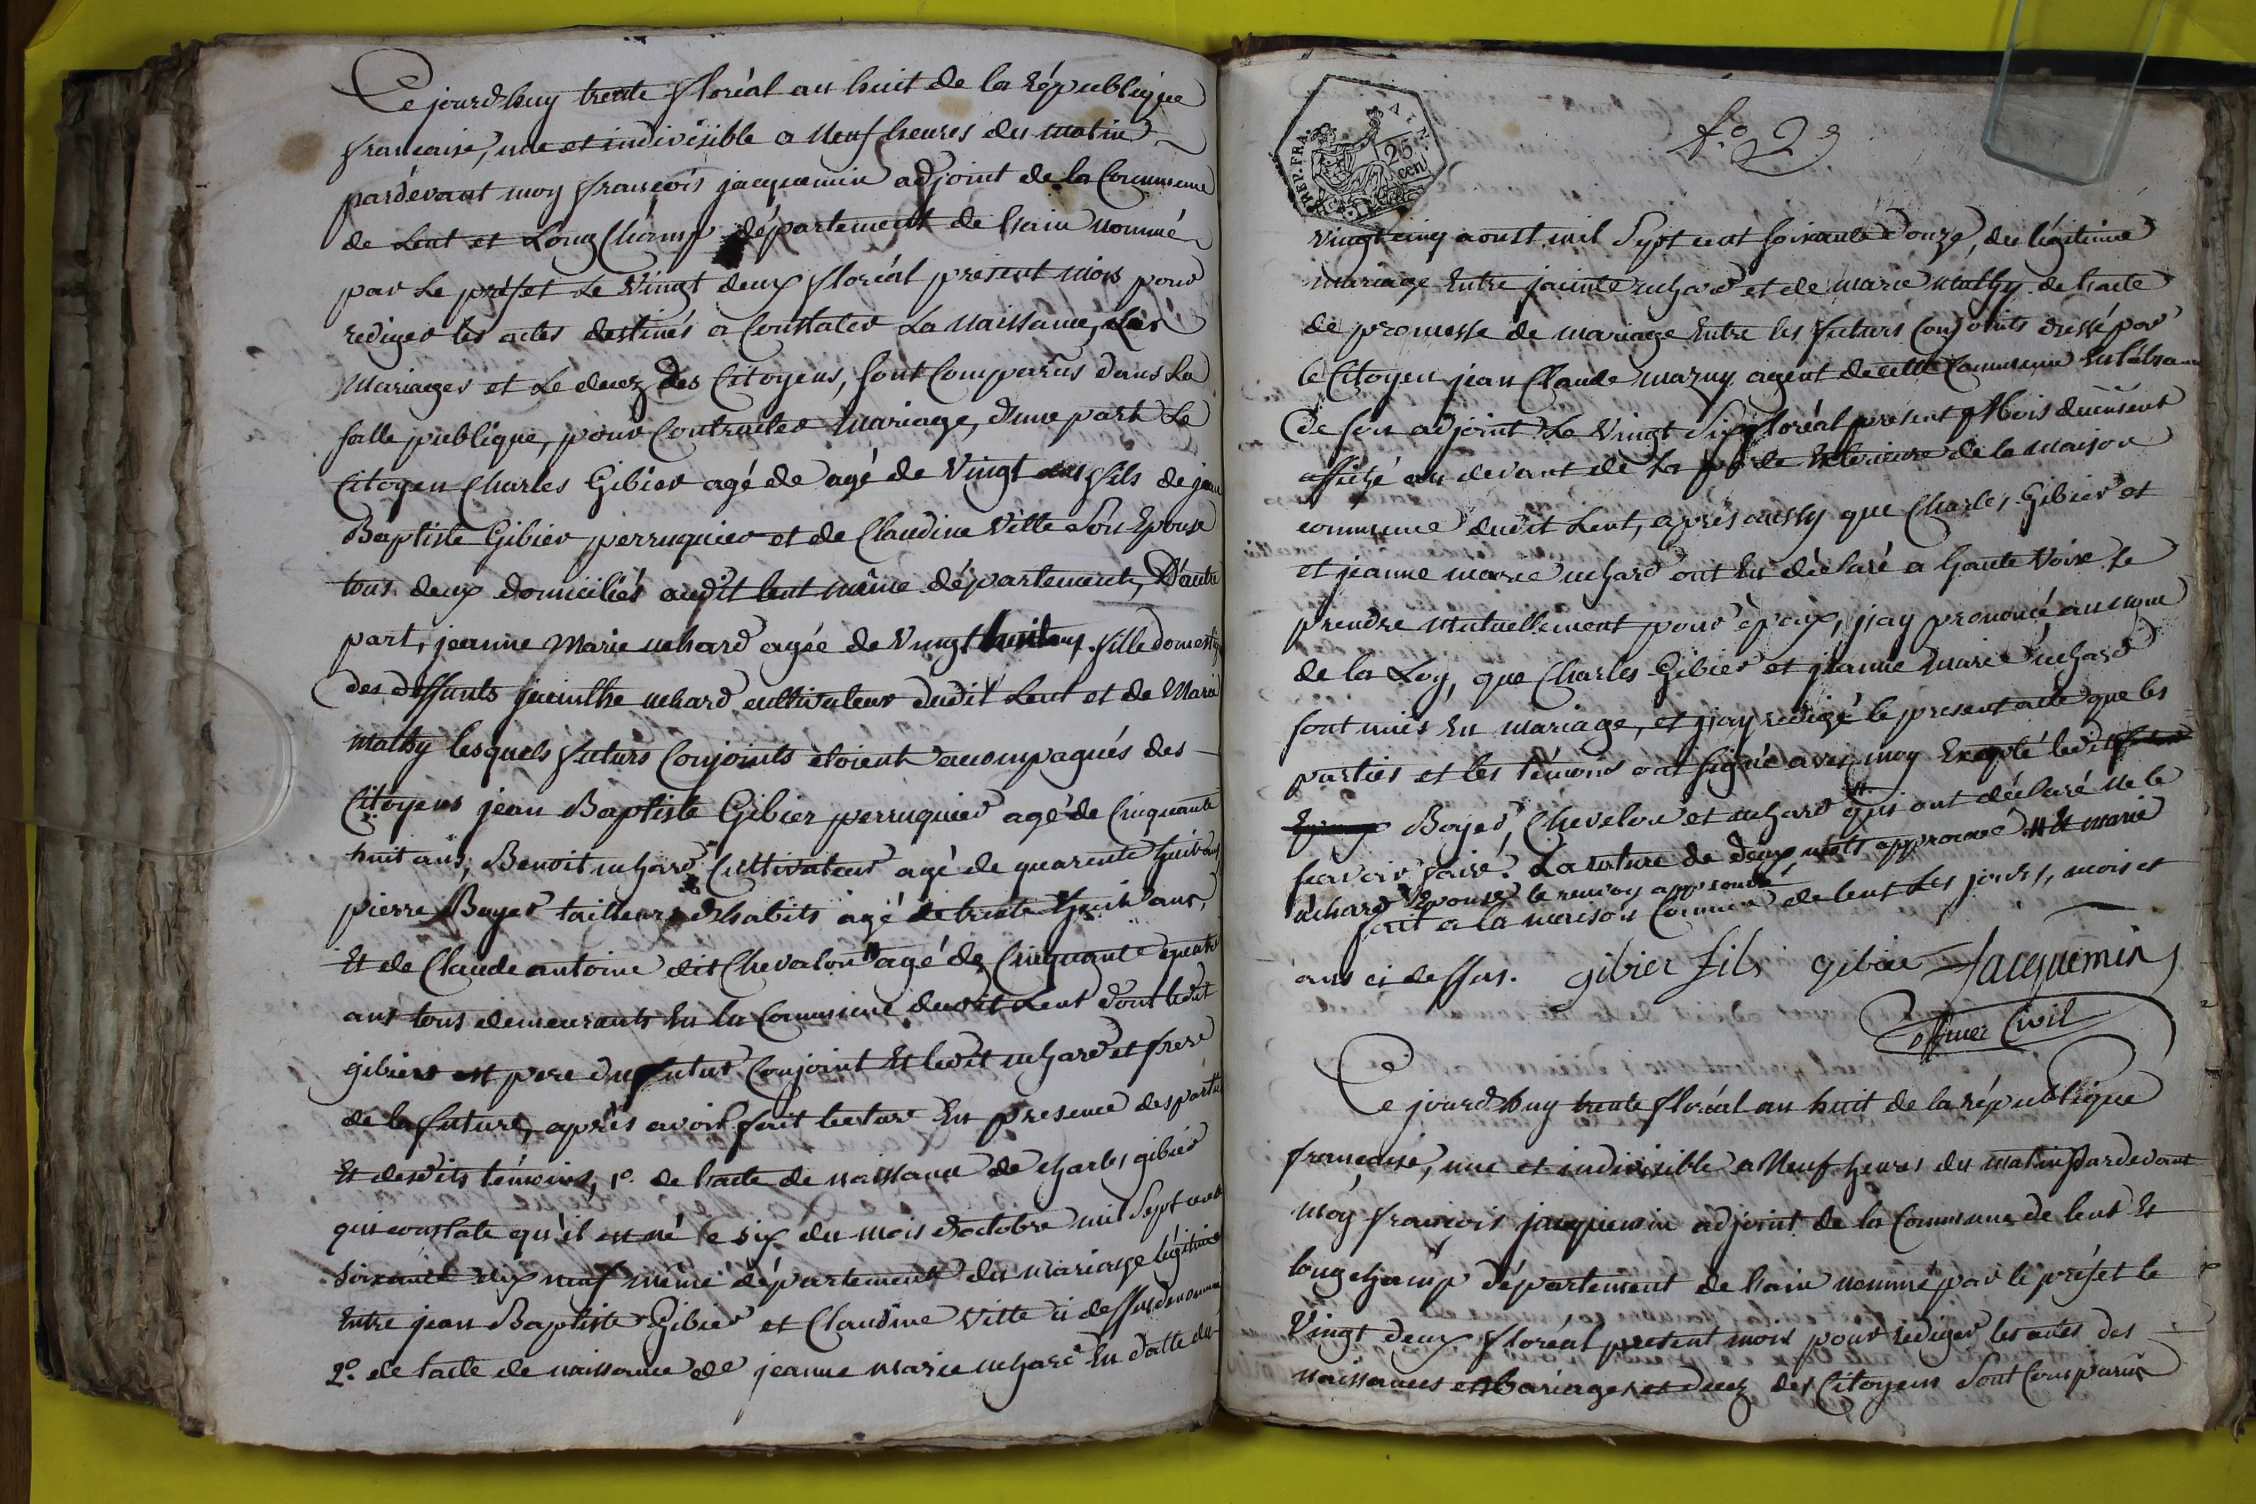 Ce jourd'huy trente floréal an huit de la république
francaise, une et indivisible a neuf heures du matin
pardevant moy francois jacquemin adjoint de la Commune
de Lent et Longchamp département de l'ain nommé
par Le préfet Le Vingt deux floréal present mois pour
rediger les actes destinés a Constater La Naissance, Les
Mariages et Le decez des Citoyens, sont Comparus dans La
salle publique, pour Contracter Mariage, d'une part Le
Citoyen Charles Gibier agé de agé de Vingt ans fils de jean
Baptiste Gibier perruquier et de Claudine Vitte Son Epouse
tous deux domiciliés audit lent même département, D'autre
part, jeanne Marie uchard agée de Vingt huit ans, fille domestiq
des deffunts jacinthe uchard cultivateur dudit Lent et de Marie
mathy lesquels futurs Conjoints étoient acompagnés des
Citoyens jean Baptiste Gibier perruquier agé de Cinquante
huit ans, Benoit uchard Cultivateur agé de quarente huit ans
pierre Boyer tailleur d'habits agé de trente huit ans,
Et de Claude antoine dit Chevalon agé de Cinquante quatre
ans tous demeurants En la Commune dudit Lent dont ledit
gibier est pere du futur Conjoint Et ledit uchard et frere
de la future, après avoir fait lecture En presence des parties
Et desdits témoins, 1°. de l'acte de naissance de charles gibier
qui constate qu'il est né le six du mois d'octobre mil Sept cent
soixante dix neuf même département du mariage légitime
Entre jean Baptiste Gibier et Claudine Vitte ci dessus denommé
2°. de l'acte de naissance de jeanne marie uchard En datte du
REP. FRA.
25 cen
f.° 29
vingt cinq aoust mil Sept cent soixante douze, du légitime
mariage Entre jacinte uchard et de marie mathy de l'acte
de promesse de mariage Entre les futurs Conjoints dressé par
le Citoyen jean Claude mazuy agent de cette Commune En l'absance
de son adjoint Le Vingt Six floréal present Mois duement
affiché au devant de la porte Exterieure de la maison
commune dudit Lent, après aussy que Charles Gibier et
et jeanne marie uchard ont Eu déclaré a haute Voix se
prendre mutuellement pour époux, j'ay prononcé au nom
de la Loy, que Charles Gibier et jeanne marie uchard
sont unis En mariage, et j'ay redigé le present acte que les
parties et les témoins ont signé avec moy Excepté ledit
Boyer, Chevalon et uchard # qui ont déclaré ne le
scavoir faire. La rature de deux mots approuvé # Et marie
uchard Epouse le renvoy approuvé
fait a la maison Commune de lent Les jours, mois et
ans ci dessus. gibier fils gibier Jacquemin
officier Civil
Ce jourd'huy trente floréal an huit de la république
francaise, une et indivisible a Neuf heures du matin Pardevant
moy francois jacquemin adjoint de la Commune de lent Et
longchamp département de l'ain nommé par le préfet le
Vingt deux floréal present mois pour rediger les actes des
naissances et Mariages et decez des Citoyens Sont Comparus